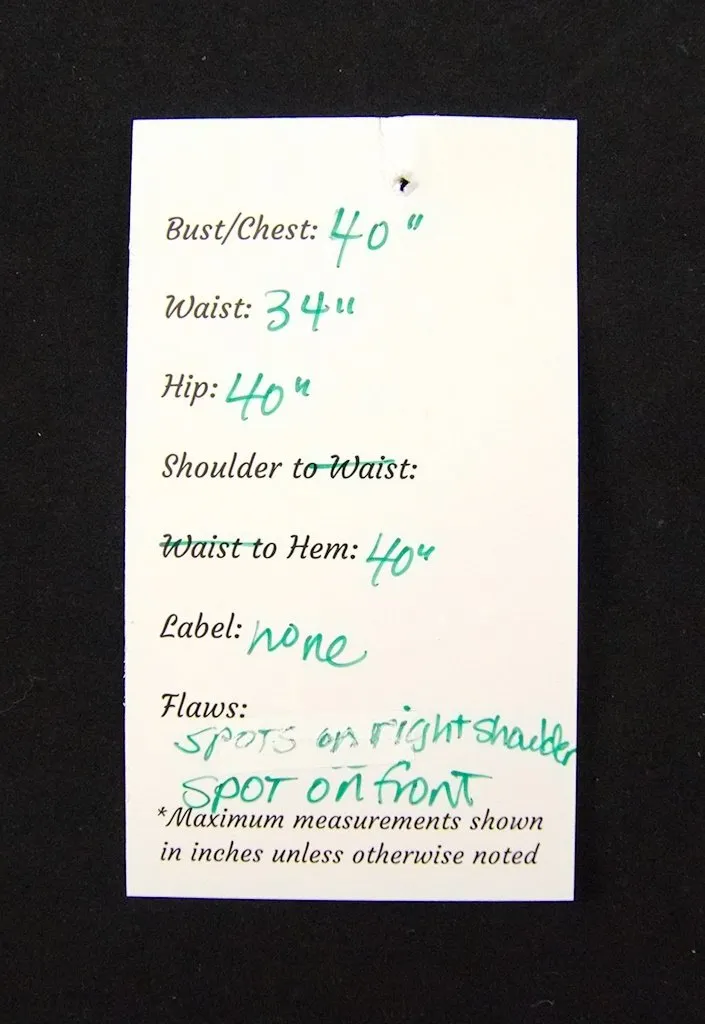 Bust/Chest: 40"
Waist: 34"
Hip: 40"
Shoulder to Waist:
Waist to Hem: 40"
Label: none
Flaws:
spots on right shoulder
SPOT on front
*Maximum measurements shown
in inches unless otherwise noted